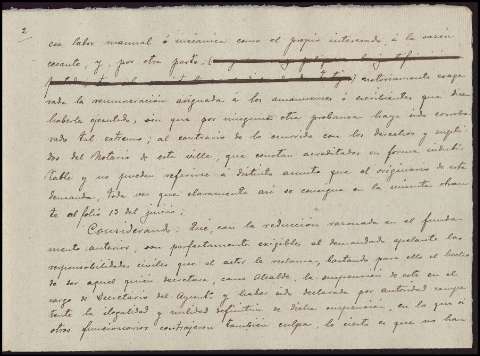 2
cer labor manual ó mecánica como el propio interesado, á la sazón
cesante, y, por otra parte,
notoriamente exage-
rada la remuneración asignada á los amanuenses ó escribientes que dice
haberla ejecutado, sin que por ninguna otra probanza haya sido corrobo-
rado tal extremo; al contrario de lo ocurrido con los derechos y supli-
dos del Notario de esta villa, que constan acreditados en forma indubi-
table y no pueden referirse á distinto asunto que al originario de esta
demanda, toda vez que claramente así se consigna en la minuta obran-
te al folio 13 del juicio.
Considerando: Que, con la reducción razonada en el funda-
mento anterior, son perfectamente exigibles al demandado apelante las
responsabilidades civiles que el actor le reclama, bastando para ello el hecho
de ser aquel quien decretara, como Alcalde, la suspensión de este en el
cargo de Secretario del Ayunto y haber sido declarada por autoridad compe-
tente la ilegalidad y nulidad definitiva de dicha suspensión, en la que si
otros funcionarios contrajeron también culpa, lo cierto es que no han